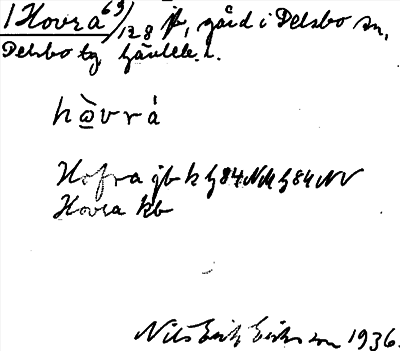 1 Hovra 69/128 fr, gård i Delsbo sn,
Delsbo tg Gävleb. l.
hàvrá
Hofra jb k G 84 NM G 84 NV
Hovra kb
Nils Erik Eriksson 1936.